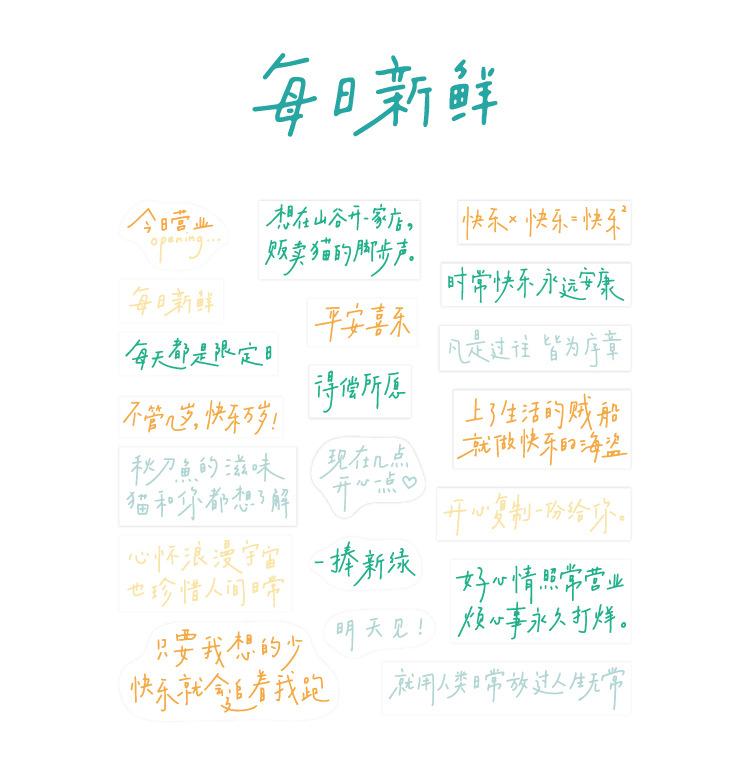 每日新鲜
今日营业
opening...
每日新鲜
每天都是限定日
不管几岁,快乐万岁!
秋刀魚的滋味
猫和你都想了解
心怀浪漫宇宙
也珍惜人间日常
只要我想的少
快乐就会追着我跑
想在山谷开一家店,
贩卖猫的脚步声。
平安喜乐
得偿所愿
现在几点
开心一点♡
一捧新绿
明天见!
快乐×快乐=快乐²
时常快乐 永远安康
凡是过往 皆为序章
上了生活的贼船
就做快乐的海盗
开心复制一份给你。
好心情照常营业
烦心事永久打烊。
就用人类日常放过人生无常